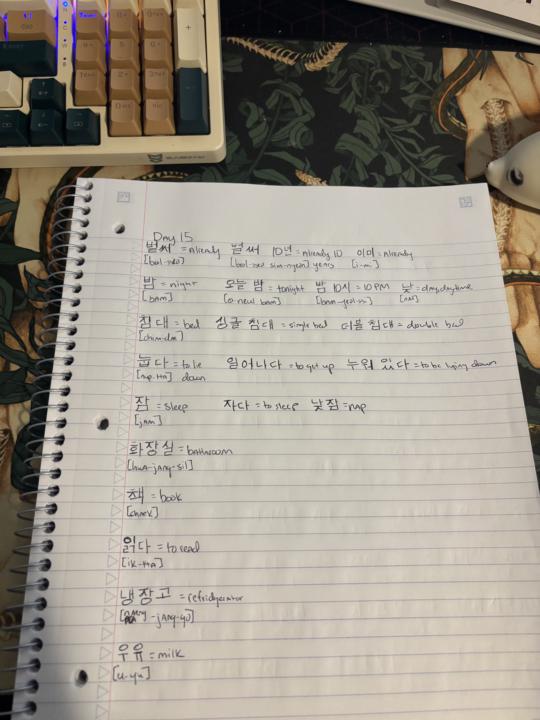 Day 15
벌써 = Already 벌써 10년 = Already 10 이미 = Already
[bal-sso] [bal-sseo sim-nyeon] years [i-mi]
밤 = night 오늘 밤 = tonight 밤 10시 = 10PM 낮 = day, daytime
[bam] [o-neul bam] [bam-yeol-si] [nat]
침대 = bed 싱글 침대 = single bed 더블 침대 = double bed
[chim-dae]
눕다 = to lie 일어나다 = to get up 누워 있다 = to be lying down
[nup-ttA] down
잠 = sleep 자다 = to sleep 낮잠 = nap
[jAm]
화장실 = bathroom
[hwA-jAng-sil]
책 = book
[chaek]
읽다 = to read
[ik-ttA]
냉장고 = refridgerator
-jAng-go]
우유 = milk
[u-yu]